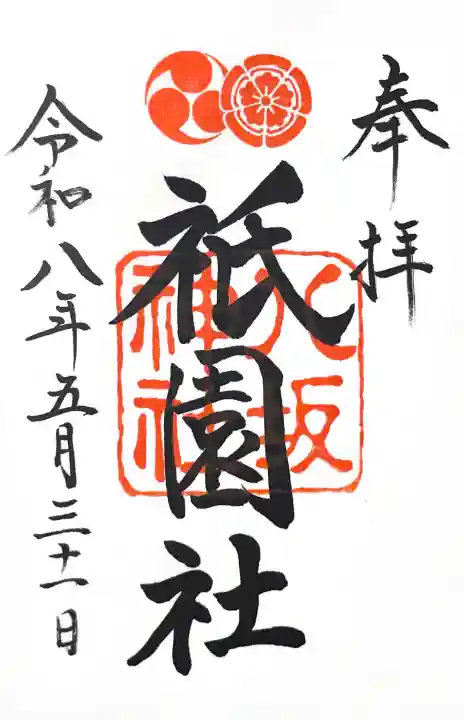 奉拝
八坂
神社
祇園社
令和八年五月三十一日